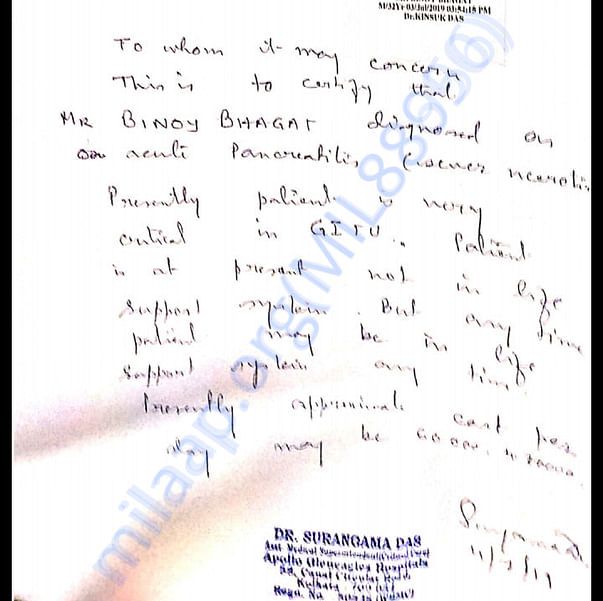 M/32Yr 03/Jul/2019 03:54:15 PM
Dr.KINSUK DAS
To whom it may concern
This is to certify that
MR BINOY BHAGAT diagnosed as
acute Pancreatitis,
Presently patient is very
critical in GITU.. Patient
is at present not in life
support system. But any time
patient may be in life
support system any time.
Presently approximate cost per
day may be
DR. SURANGAMA DAS
Apollo Gleneagles Hospitals
58, Canal Circular Road
Kolkata
Regn. No
milaap.org(MIL88956)